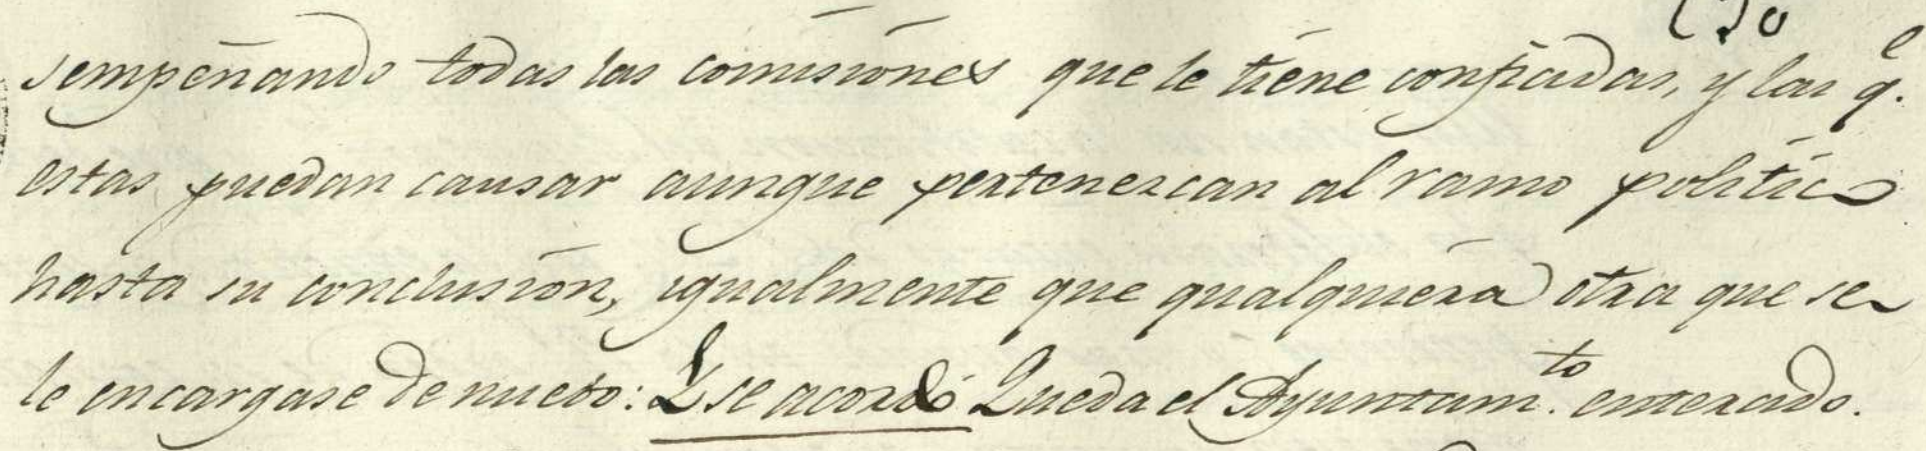 sempeñando todas las comisiones que le tiene confiadas, y las q.e
estas puedan causar aunque pertenezcan al ramo politico
hasta su conclusion, igualmente que qualquiera otra que se
le encargase de nuebo: Y se acordó Queda el Ayuntam.to enterado.